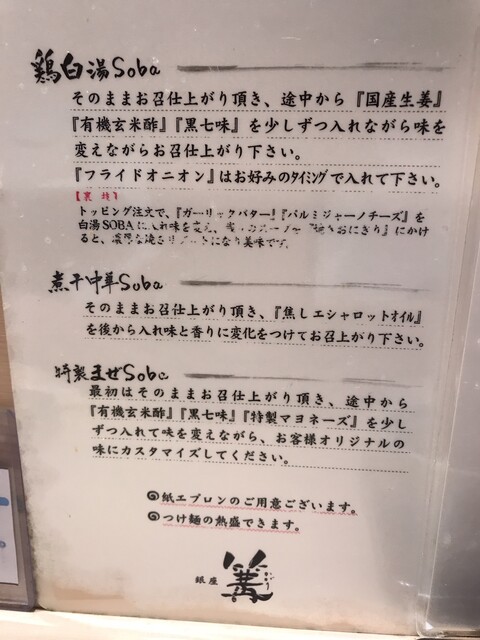 鶏白湯Soba
そのままお召仕上がり頂き、途中から『国産生姜』
『有機玄米酢』『黒七味』を少しずつ入れながら味を
変えながらお召仕上がり下さい。
『フライドオニオン』はお好みのタイミングで入れて下さい。
【裏 技】
トッピング注文で、『ガーリックバター』『パルミジャーノチーズ』を
白湯SOBAに入れ味を変え、スープを『焼きおにぎり』にかけ
ると、濃厚な焼きリゾットになり美味です。
煮干中華Soba
そのままお召仕上がり頂き、『焦しエシャロットオイル』
を後から入れ味と香りに変化をつけてお召上がり下さい。
特製まぜSoba
最初はそのままお召仕上がり頂き、途中から
『有機玄米酢』『黒七味』『特製マヨネーズ』を少し
ずつ入れて味を変えながら、お客様オリジナルの
味にカスタマイズしてください。
紙エプロンのご用意ございます。
つけ麺の熱盛できます。
銀座 篝 かがり